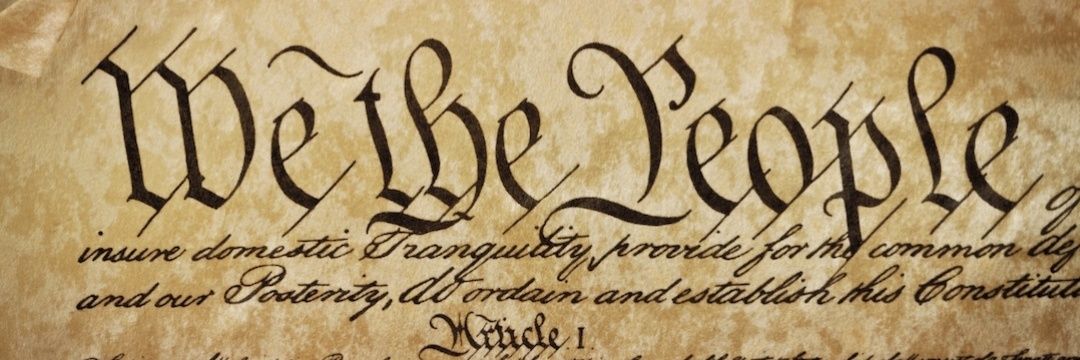 We the People
insure domestic Tranquility, provide for the common def
and our Posterity, do ordain and establish this Constituti
Article. I.